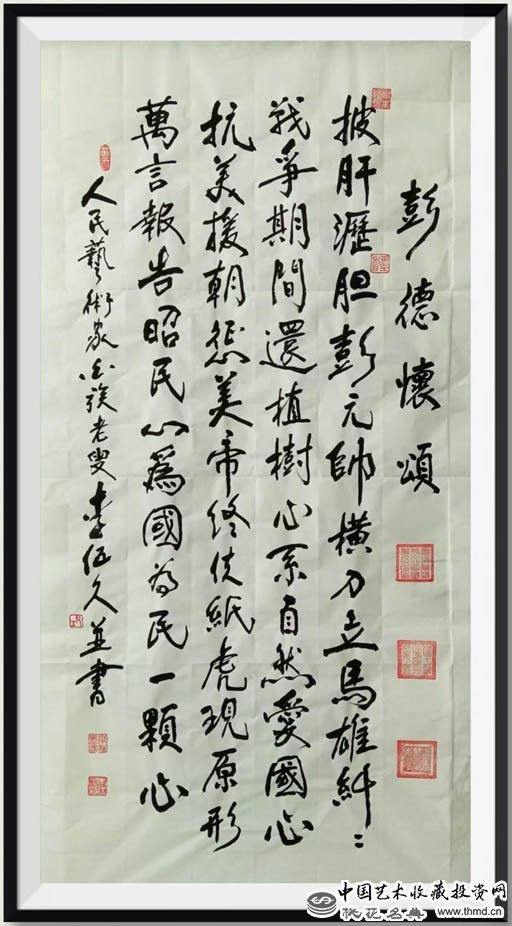 彭德懷頌
披肝瀝胆彭元帥橫刀立馬雄糾〻
戰爭期間還植樹心系自然愛國心
抗美援朝懲美帝終使紙虎現原形
萬言報告昭民心爲國为民一顆心
人民藝術家白族老叟李伍久並書
中国艺术收藏投资网
桃花名典 www.thmd.cn